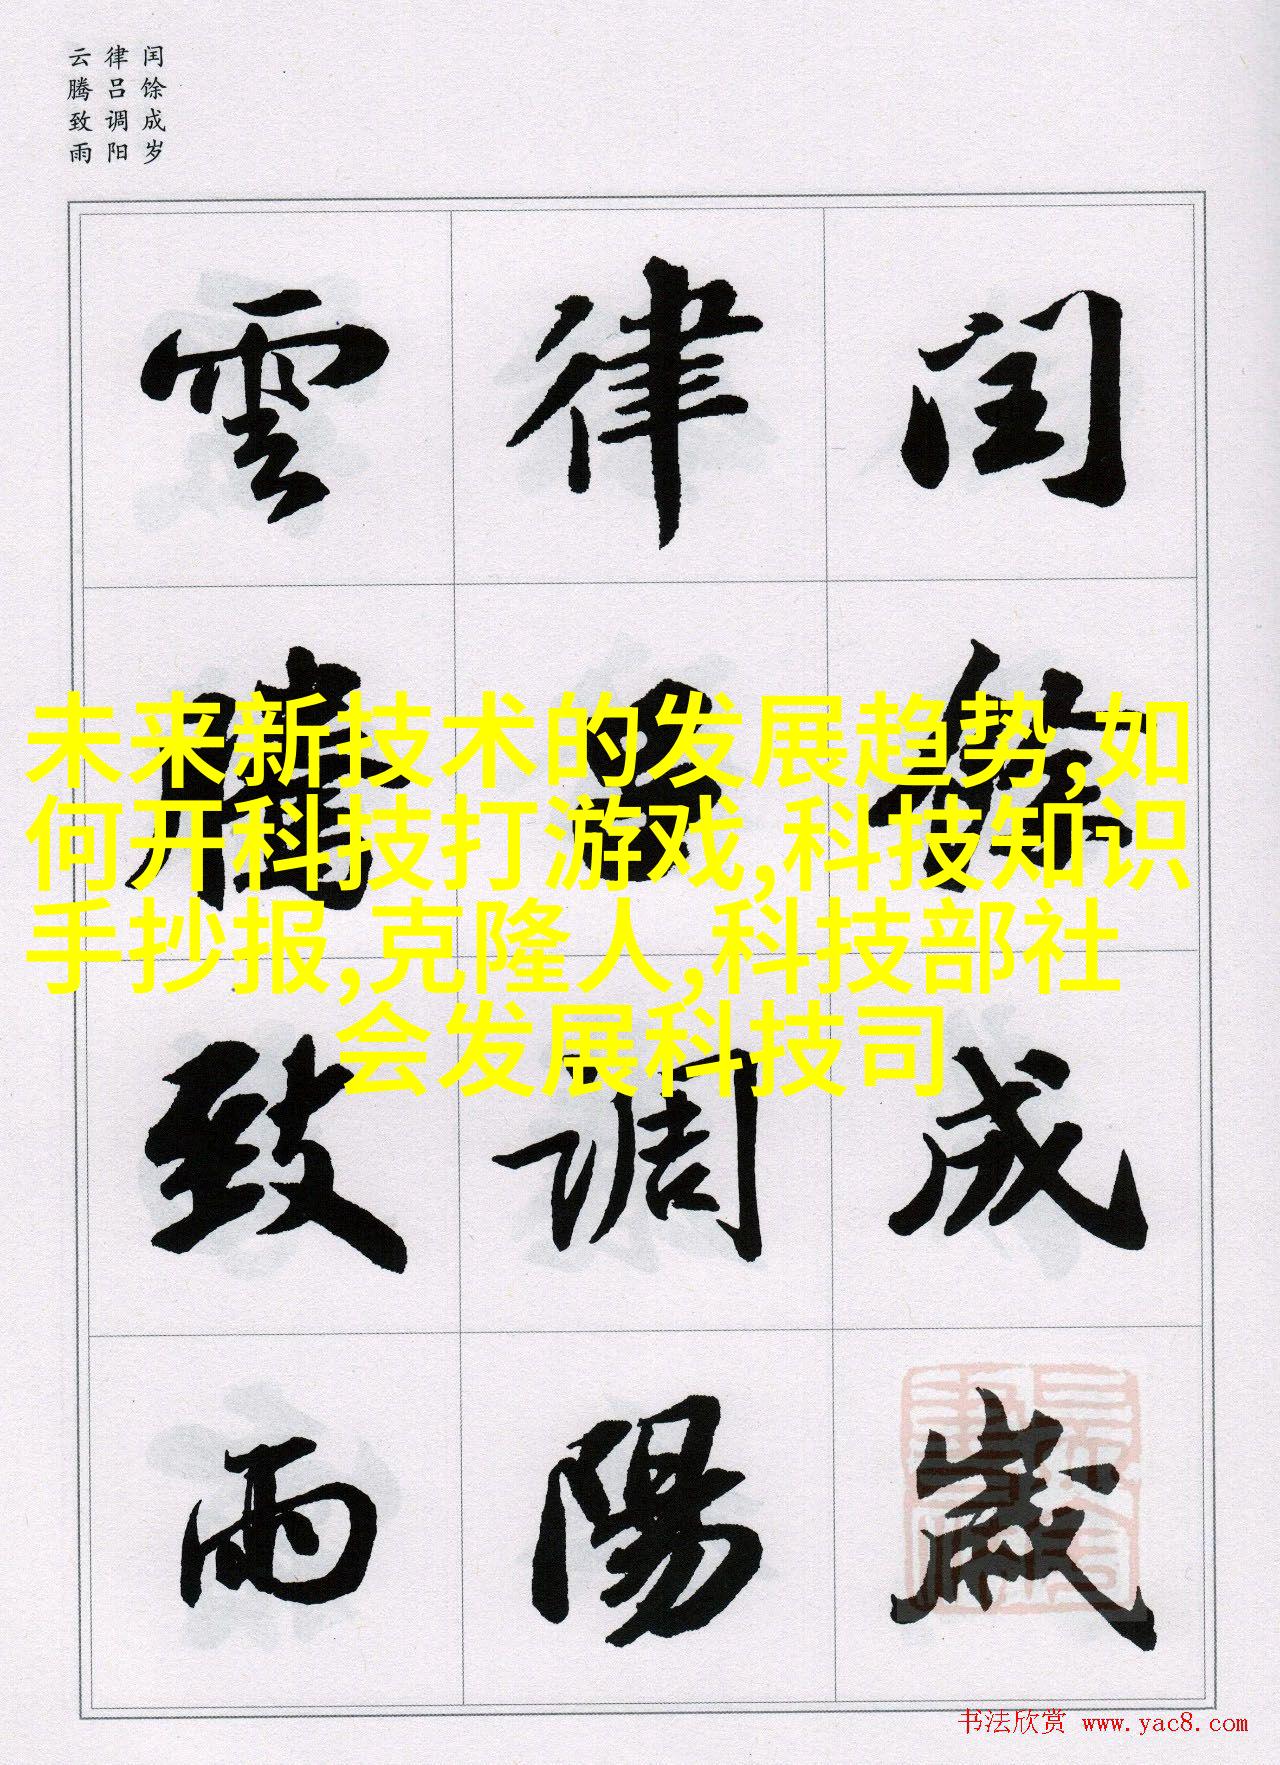 闰馀成岁
律吕调阳
云腾致雨
閏餘成歲
律吕調陽
雲騰致雨
未来新技术的发展趋势,如
何开科技打游戏,科技知识
手抄报,克隆人,科技部社
会发展科技司
书法欣赏 www.yac8.com